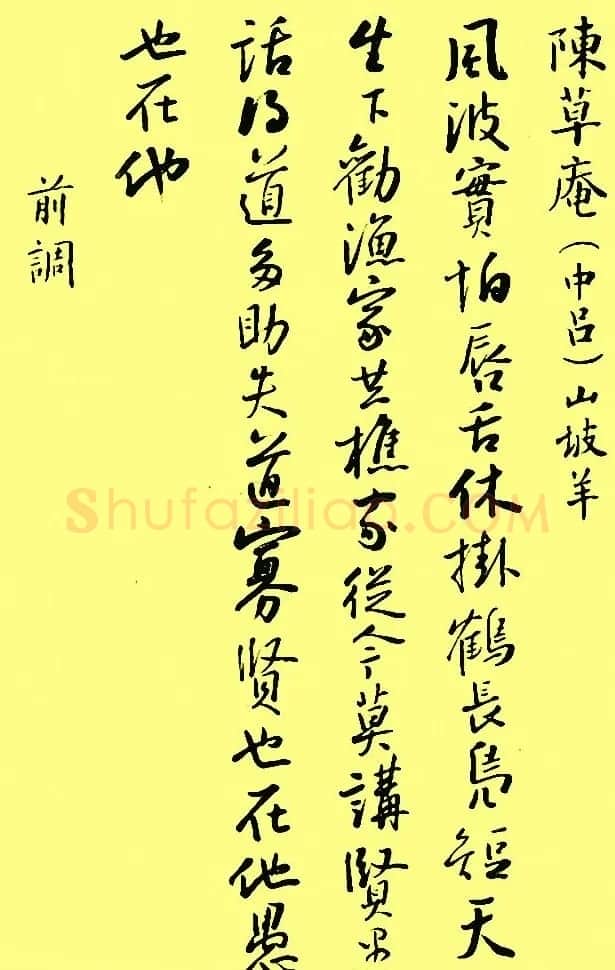 陳草庵(中呂)山坡羊
風波實怕唇舌休掛鶴長鳧短天
生下勸漁家共樵家從今莫講賢
話得道多助失道寡賢也在他愚
也在他
前調
Shufazilian.COM